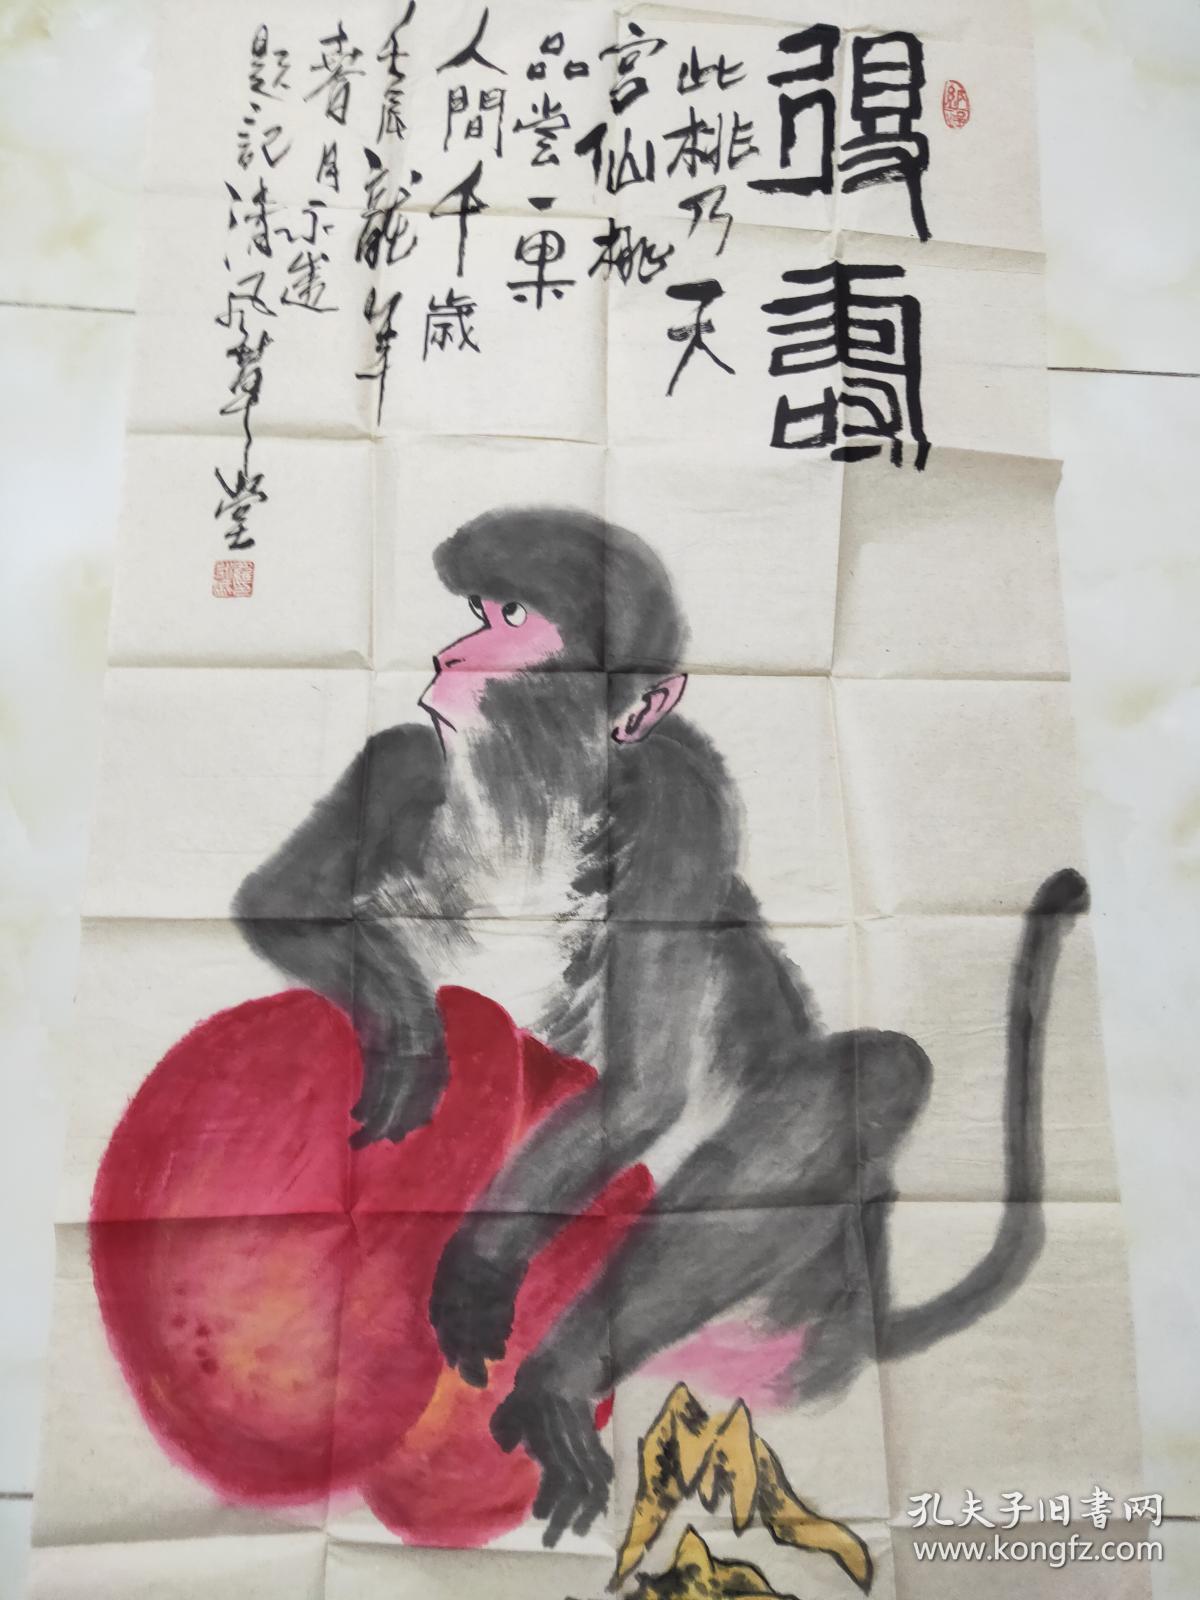 得壽
此桃乃天
宮仙桃
品尝一果
人間千歳
壬辰龍年
春月
題記清風草堂
孔夫子旧书网
www.kongfz.com